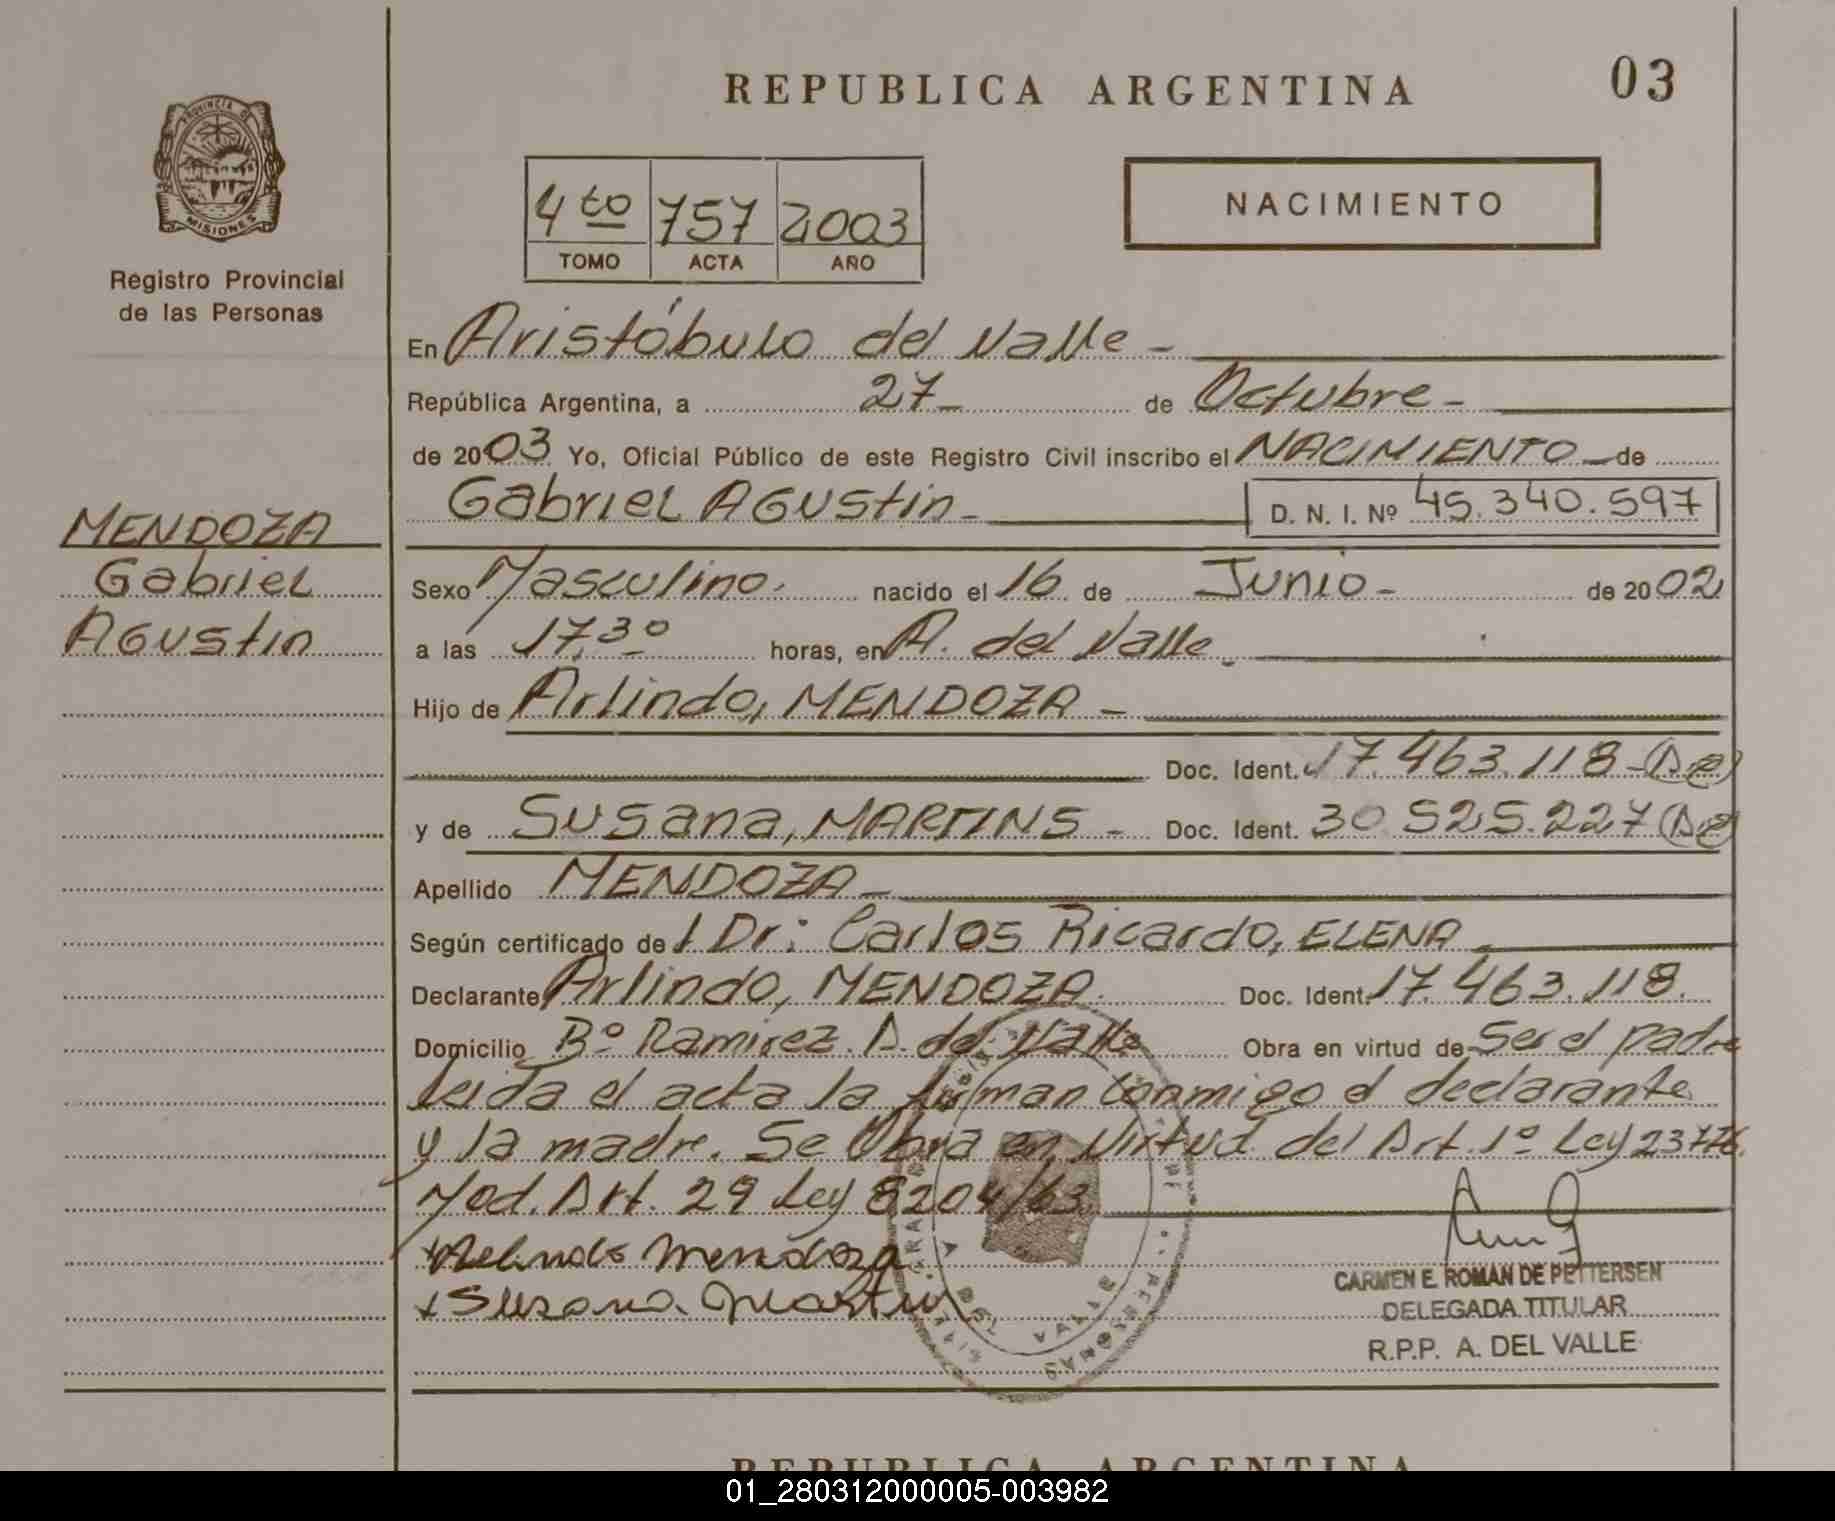 REPUBLICA ARGENTINA
03
PROVINCIA DE
MISIONES
Registro Provincial
de las Personas
4to 757 2003
TOMO ACTA AÑO
NACIMIENTO
En Aristóbulo del Valle -
República Argentina, a 27- de Octubre -
de 2003 Yo, Oficial Público de este Registro Civil inscribo el NACIMIENTO - de
Gabriel Agustin - D. N. I. Nº 45.340.597
MENDOZA
Gabriel
Agustin
Sexo Masculino. nacido el 16 de Junio - de 2002
a las 17,30 horas, en A. del Valle -
Hijo de Arlindo, MENDOZA -
Doc. Ident. 17.463.118 -
y de Susana, MARTINS - Doc. Ident. 30.525.227
Apellido MENDOZA -
Según certificado de l Dr: Carlos Ricardo, ELENA -
Declarante Arlindo, MENDOZA. Doc. Ident. 17.463.118.
Domicilio Bº Ramirez. A. del Valle Obra en virtud de Ser el padre
leida el acta la firman conmigo el declarante
y la madre. Se Obra en Virtud del Art. 1º Ley 23776.
Mod. Art. 29 Ley 8204/63.
Arlindo Mendoza
Susana Martin
A DEL VALLE
PERSONAS
CARMEN E. ROMAN DE PETTERSEN
DELEGADA TITULAR
R.P.P. A. DEL VALLE
REPUBLICA ARGENTINA
01_280312000005-003982